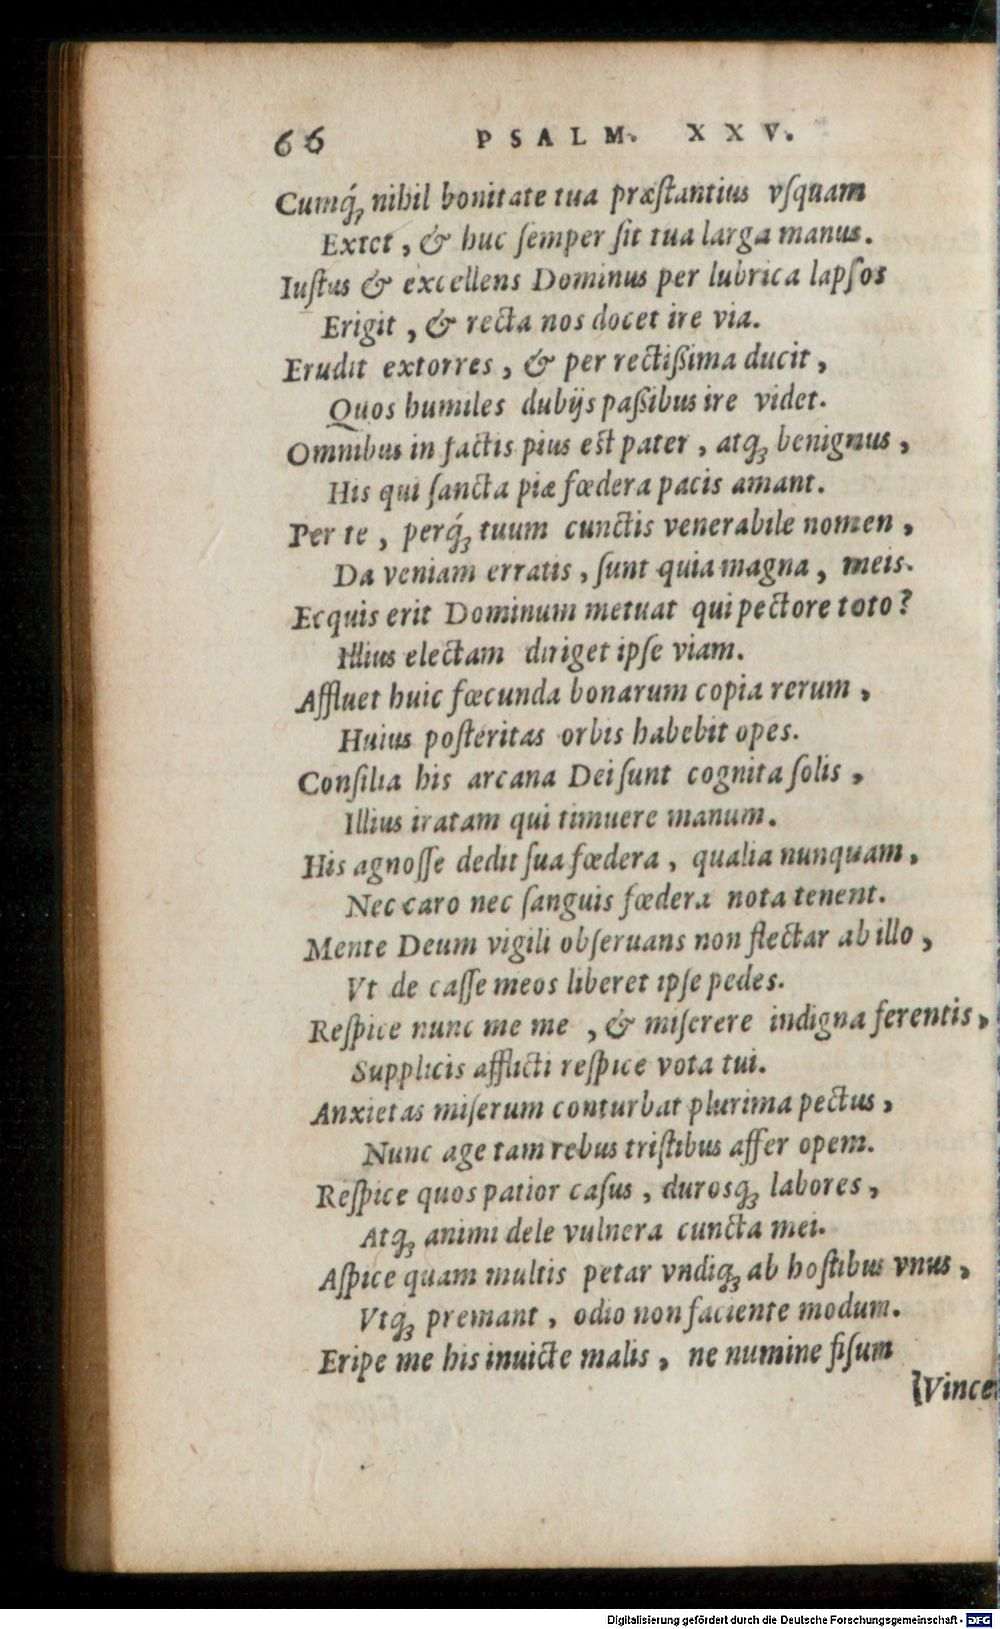 66 PSALM. XXV.
Cumq́ꝫ nihil bonitate tua præſtantius vſquam
Extet, & huc ſemper ſit tua larga manus.
Iuſtus & excellens Dominus per lubrica lapſos
Erigit, & recta nos docet ire via.
Erudit extorres, & per rectißima ducit,
Quos humiles dubijs paßibus ire videt.
Omnibus in factis pius est pater, atqꝫ benignus,
His qui ſancta piæ fœdera pacis amant.
Per te, perq́ꝫ tuum cunctis venerabile nomen,
Da veniam erratis, ſunt quia magna, meis.
Ecquis erit Dominum metuat qui pectore toto?
Illius electam diriget ipſe viam.
Affluet huic fœcunda bonarum copia rerum,
Huius poſteritas orbis habebit opes.
Conſilia his arcana Dei ſunt cognita ſolis,
Illius iratam qui timuere manum.
His agnoſſe dedit ſua fœdera, qualia nunquam,
Nec caro nec ſanguis fœdera nota tenent.
Mente Deum vigili obſeruans non flectar ab illo,
Vt de caſſe meos liberet ipſe pedes.
Reſpice nunc me me, & miſerere indigna ferentis,
Supplicis afflicti reſpice vota tui.
Anxietas miſerum conturbat plurima pectus,
Nunc age tam rebus triſtibus affer opem.
Reſpice quos patior caſus, durosqꝫ labores,
Atqꝫ animi dele vulnera cuncta mei.
Aſpice quam multis petar vndiqꝫ ab hoſtibus vnus,
Vtqꝫ premant, odio non faciente modum.
Eripe me his inuicte malis, ne numine fiſum
Vince
Digitalisierung gefördert durch die Deutsche Forschungsgemeinschaft - DFG